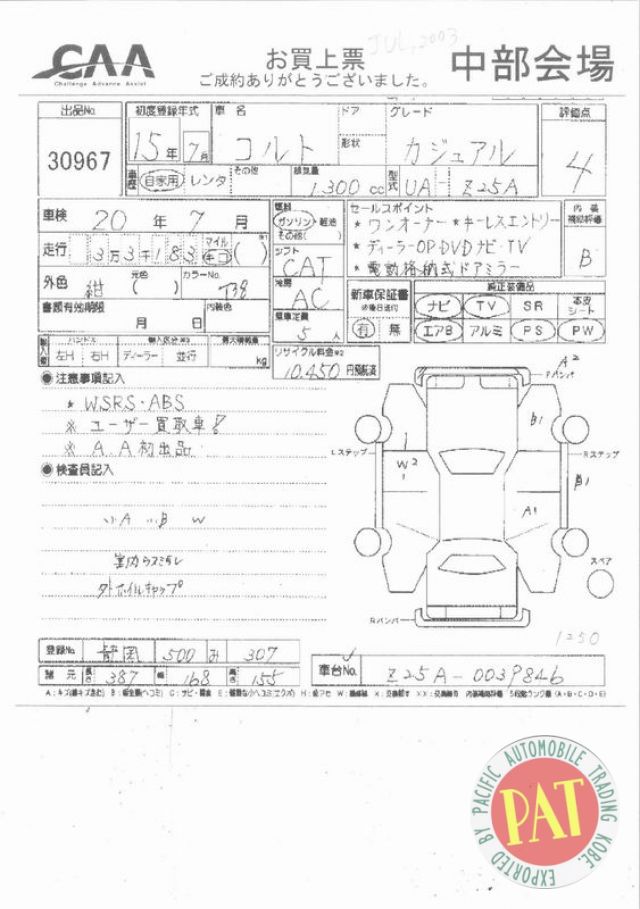 JUL, 2003
CAA
Challenge Advance Assist
お買上票
ご成約ありがとうございました。
中部会場
出品No.
30967
初度登録年式
15年 7月
車名
コルト
ドア
形状
グレード
カジュアル
評価点
4
車歴
自家用 レンタ
その他
排気量
1,300 cc
型式
UA- Z25A
車検
20年 7月
燃料
ガソリン・軽油
その他( )
セールスポイント
* ワンオーナー * キーレスエントリー
* ディーラーOP DVDナビ・TV
* 電動格納式ドアミラー
内装
補助評価
B
走行
3万3千183
マイル
キロ
( )
シフト
CAT
外色
紺
元色
( )
カラーNo.
T38
冷房
AC
新車保証書
有 無
純正装備品
ナビ TV SR 本皮シート
エアB アルミ PS PW
書類有効期限
月 日
内装色
乗車定員
5人
輸入車
ハンドル
左H 右H
輸入区分
ディーラー 並行
最大積載量
kg
リサイクル料金
10,450 円預託済
◉注意事項記入
* W.SRS・ABS
※ ユーザー買取車!
※ A.A初出品
◉検査員記入
小A 小B W
室内ウスヨゴレ
外ホイルキャップ
A2
Fバンパ
B1
Lステップ
W2
1
1
Rステップ
B1
A1
スペア
Rバンパ
1250
登録No.
静岡 500 み 307
諸元
長さ 387 幅 168 高さ 155
車台No.
Z25A-0039846
PACIFIC AUTOMOBILE TRADING KOBE.
PAT
EXPORTED BY